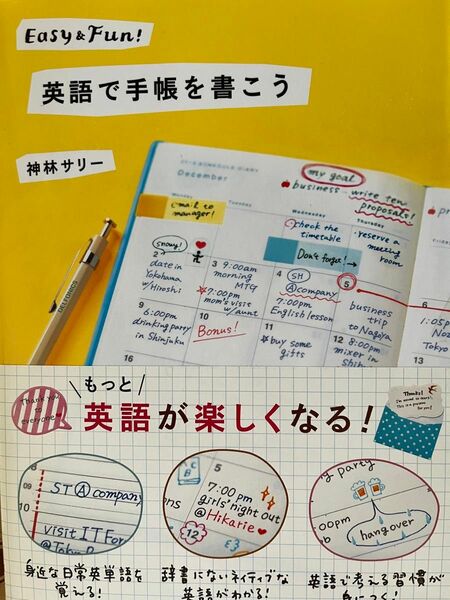 Easy & Fun!
英語で手帳を書こう
神林サリー
my goal
business - write ten
proposals!
December
Monday
Wednesday
Thursday
mail to
manager!
check the
timetable
reserve a
meeting
room
Don't forget!→
snowy!
2
date in
Yokohama
w/Hiroshi
3 9:00am
morning
MTG
7:00pm
mom's visit
w/aunt
4 SH
Ⓐcompany
7:00pm
English lesson
5
business
trip
to Nagoya
9
6:00pm
drinking party
in Shinjuku
10
Bonus!
11
buy some
gifts
12 8:30pm
mixer in
1:05p
Tokyo
16
17
18
もっと
英語が楽しくなる!
Thank you
to
everyone
Thanks!
09
ST Ⓐ company
10
visit IT For
5
7:00 pm
girls' night out
@Hikarie
12
g party
00pm
hangover
身近な日常英単語を
覚える!
辞書にないネイティブな
英語がわかる!
英語で考える習慣が
身につく!